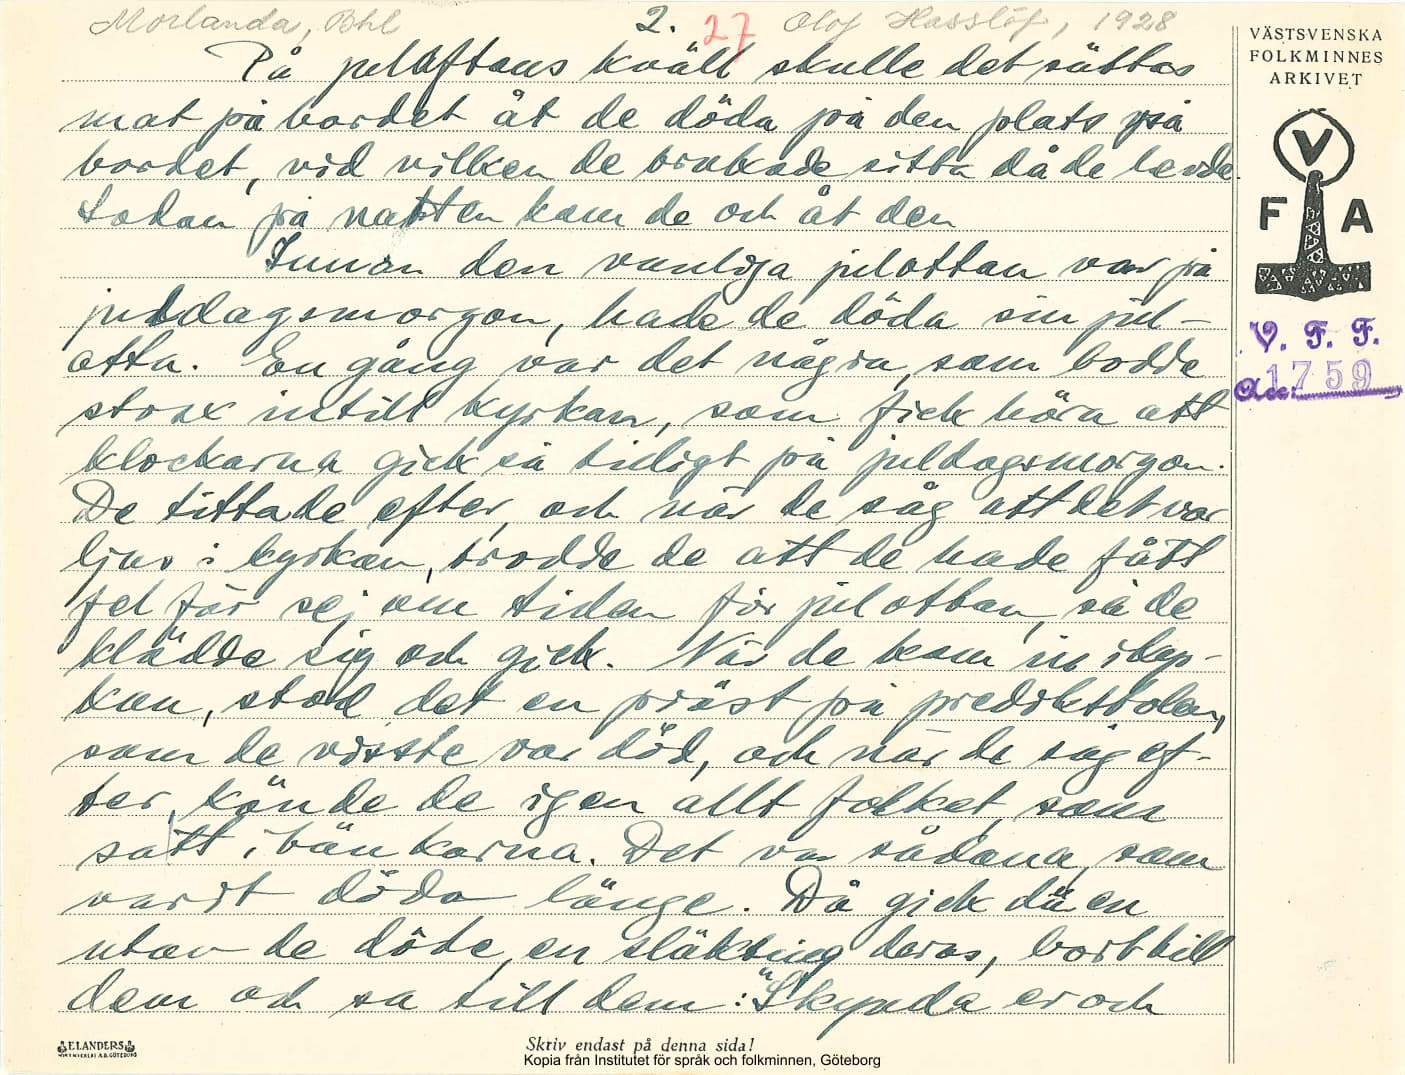 Morlanda, Bhl
2.
27
Olof Hasslöf, 1928
På julaftons kväll skulle det sättas
mat på bordet åt de döda på den plats på
bordet, vid vilken de brukade sitta då de levde
Sedan på natten kom de och åt den
Innan den vanliga julottan var på
juldagsmorgon, hade de döda sin jul-
otta. En gång var det några, som bodde
strax intill kyrkan, som fick höra att
klockorna gick så tidigt på juldagsmorgon.
De tittade efter, och när de såg att det var
ljus i kyrkan, trodde de att de hade fått
fel för sej om tiden för julottan, så de
klädde sig och gick. När de kom in i kyr-
kan, stod det en präst på predikstolen,
som de visste var död, och när de såg ef-
ter, kände de igen allt folket, som
satt i bänkarna. Det var sådana, som
varit döda länge. Då gick då en
utav de döde, en släkting deras, bort till
dem och sa till dem: "Skynda er och
VÄSTSVENSKA
FOLKMINNES
ARKIVET
V
F A
V. F. F.
Acc. 1759
ELANDERS
Skriv endast på denna sida!
Kopia från Institutet för språk och folkminnen, Göteborg